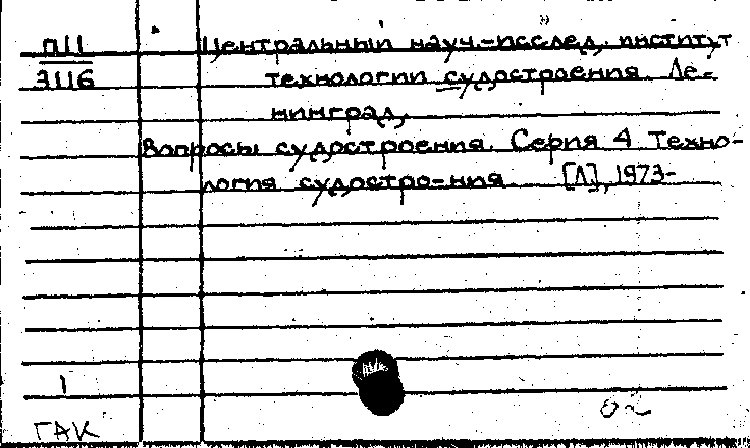 П11 Центральный науч.-исслед. институт
3116 технологии судостроения. Ле-
нинград.
Вопросы судостроения. Серия 4 Техно-
логия судостро-ния. [Л], 1973-
1
ГАК